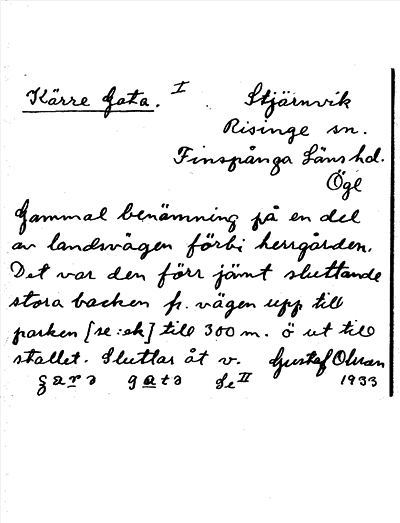 Kärre Gata. I Stjärnvik
Risinge sn.
Finspånga Läns hd.
Ögl
Gammal benämning på en del
av landsvägen förbi herrgården.
Det var den förr jämt sluttande
stora backen fr. vägen upp till
parken [se:ek] till 300 m. ö ut till
stallet. Sluttar åt v. Gustaf Olsson
gata Se II 1933